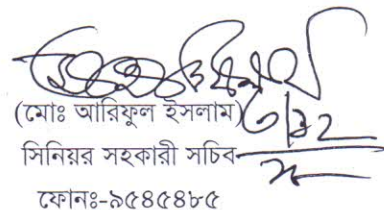 (মোঃ আরিফুল ইসলাম)
সিনিয়র সহকারী সচিব
ফোনঃ-৯৫৪৫৪৮৫